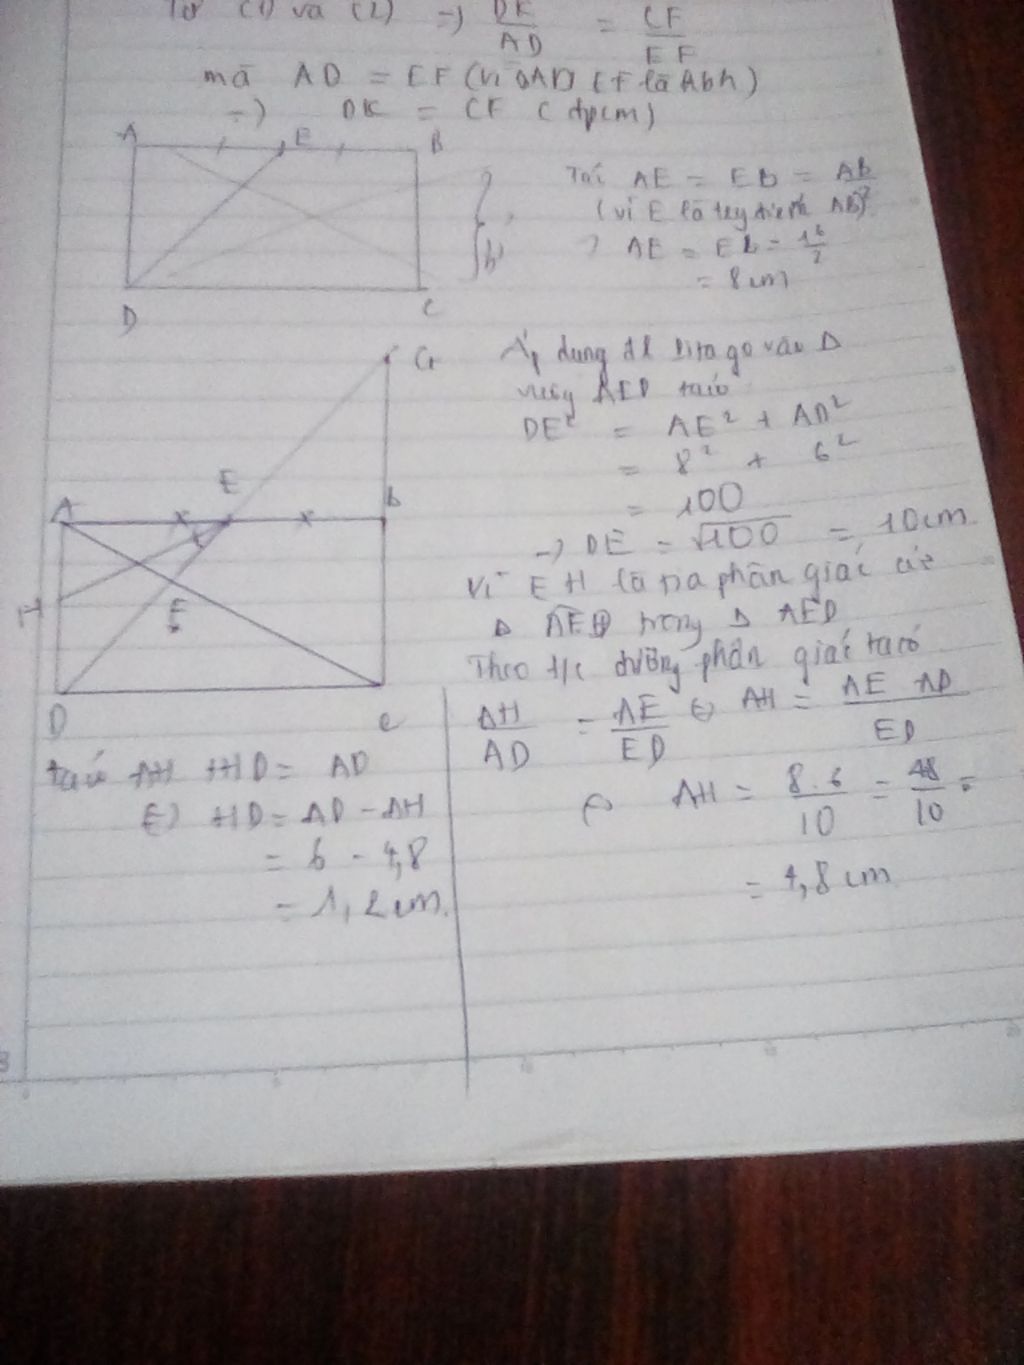 Từ (1) và (2) => DK/AD = CF/EF
mà AD = EF (vì AD EF là hbh)
=> DK = CF (đpcm)
A E B
D C
Tací AE = EB = AB/2
(vì E là AB)
AE = EB = 16/2
= 8 cm
G
Áp dụng đl Pitago vào Δ
vuông AED tacó
DE² = AE² + AD²
= 8² + 6²
= 100
=> DE = √100 = 10 cm
A E B
H F
D C
Vì EH là tia phân giác
Δ AED trong Δ AED
Theo t/c đường phân giác tacó
AH/AD = AE/ED <=> AH = AE AD/ED
<=> AH = 8.6/10 = 48/10 =
= 4,8 cm
tacó AH + HD = AD
<=> HD = AD - AH
= 6 - 4,8
= 1,2 cm.